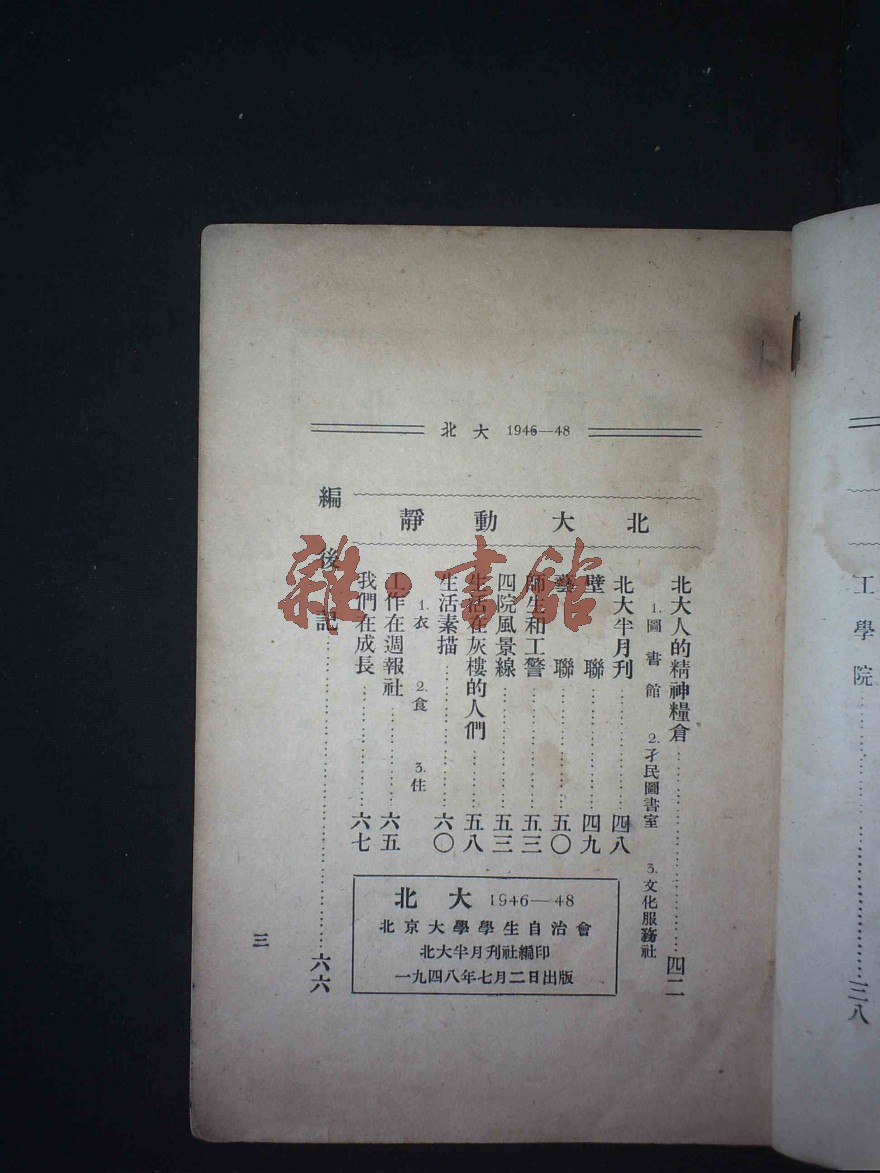 北大 1946—48
北大動靜
北大人的精神糧倉……四二
1.圖書館 2.孑民圖書室 3.文化服務社
北大半月刊……四八
壁聯……四九
藝聯……五〇
師生和工警……五三
四院風景線……五三
生活在灰樓的人們……五八
生活素描……六〇
1.衣 2.食 3.住
工作在週報社……六五
我們在成長……六七
編後記……六六
北大 1946—48
北京大學學生自治會
北大半月刊社編印
一九四八年七月二日出版
三
工學院……三八
雜·書館